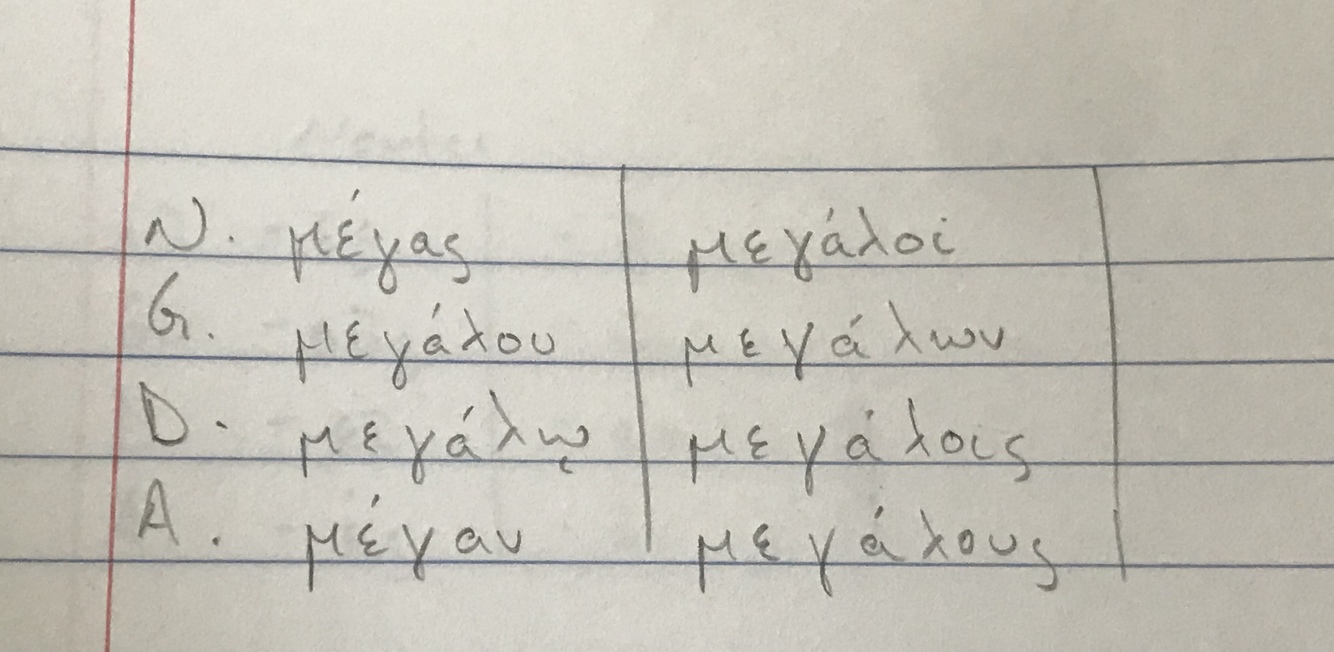 N. μέγας μεγάλοι
G. μεγάλου μεγάλων
D. μεγάλῳ μεγάλοις
A. μέγαν μεγάλους